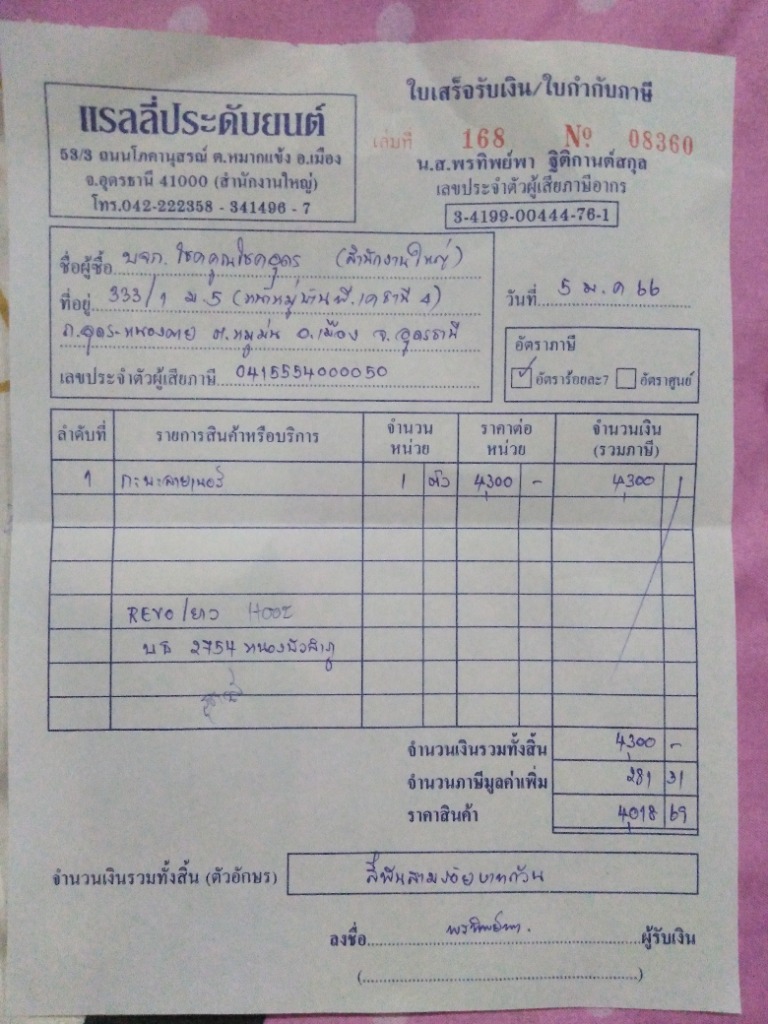 ใบเสร็จรับเงิน/ใบกำกับภาษี
แรลลี่ประดับยนต์
53/3 ถนนโภคานุสรณ์ ต.หมากแข้ง อ.เมือง
จ.อุดรธานี 41000 (สำนักงานใหญ่)
โทร.042-222358 - 341496 - 7
เล่มที่ 168 Nº 08360
น.ส.พรทิพย์พา ฐิติกานต์สกุล
เลขประจำตัวผู้เสียภาษีอากร
3-4199-00444-76-1
ชื่อผู้ซื้อ บจก. โชคคูณโชคอุดร (สำนักงานใหญ่)
ที่อยู่ 333/1 ม.5 (หน้าหมู่บ้านพี.เคธานี 4)
ถ.อุดร-หนองคาย ต.หมูม่น อ.เมือง จ.อุดรธานี
เลขประจำตัวผู้เสียภาษี 0415554000050
วันที่ 5 ม.ค 66
อัตราภาษี
อัตราร้อยละ7 อัตราศูนย์
ลำดับที่ รายการสินค้าหรือบริการ จำนวนหน่วย ราคาต่อหน่วย จำนวนเงิน (รวมภาษี)
1 กะบะลายเนอร์ 1 ตัว 4,300 - 4,300
REVO/ยาว
บธ 2754 หนองบัวลำภู
จำนวนเงินรวมทั้งสิ้น 4,300 -
จำนวนภาษีมูลค่าเพิ่ม 281 31
ราคาสินค้า 4,018 69
จำนวนเงินรวมทั้งสิ้น (ตัวอักษร) สี่พันสามร้อยบาทถ้วน
ลงชื่อ พรทิพย์พา. ผู้รับเงิน